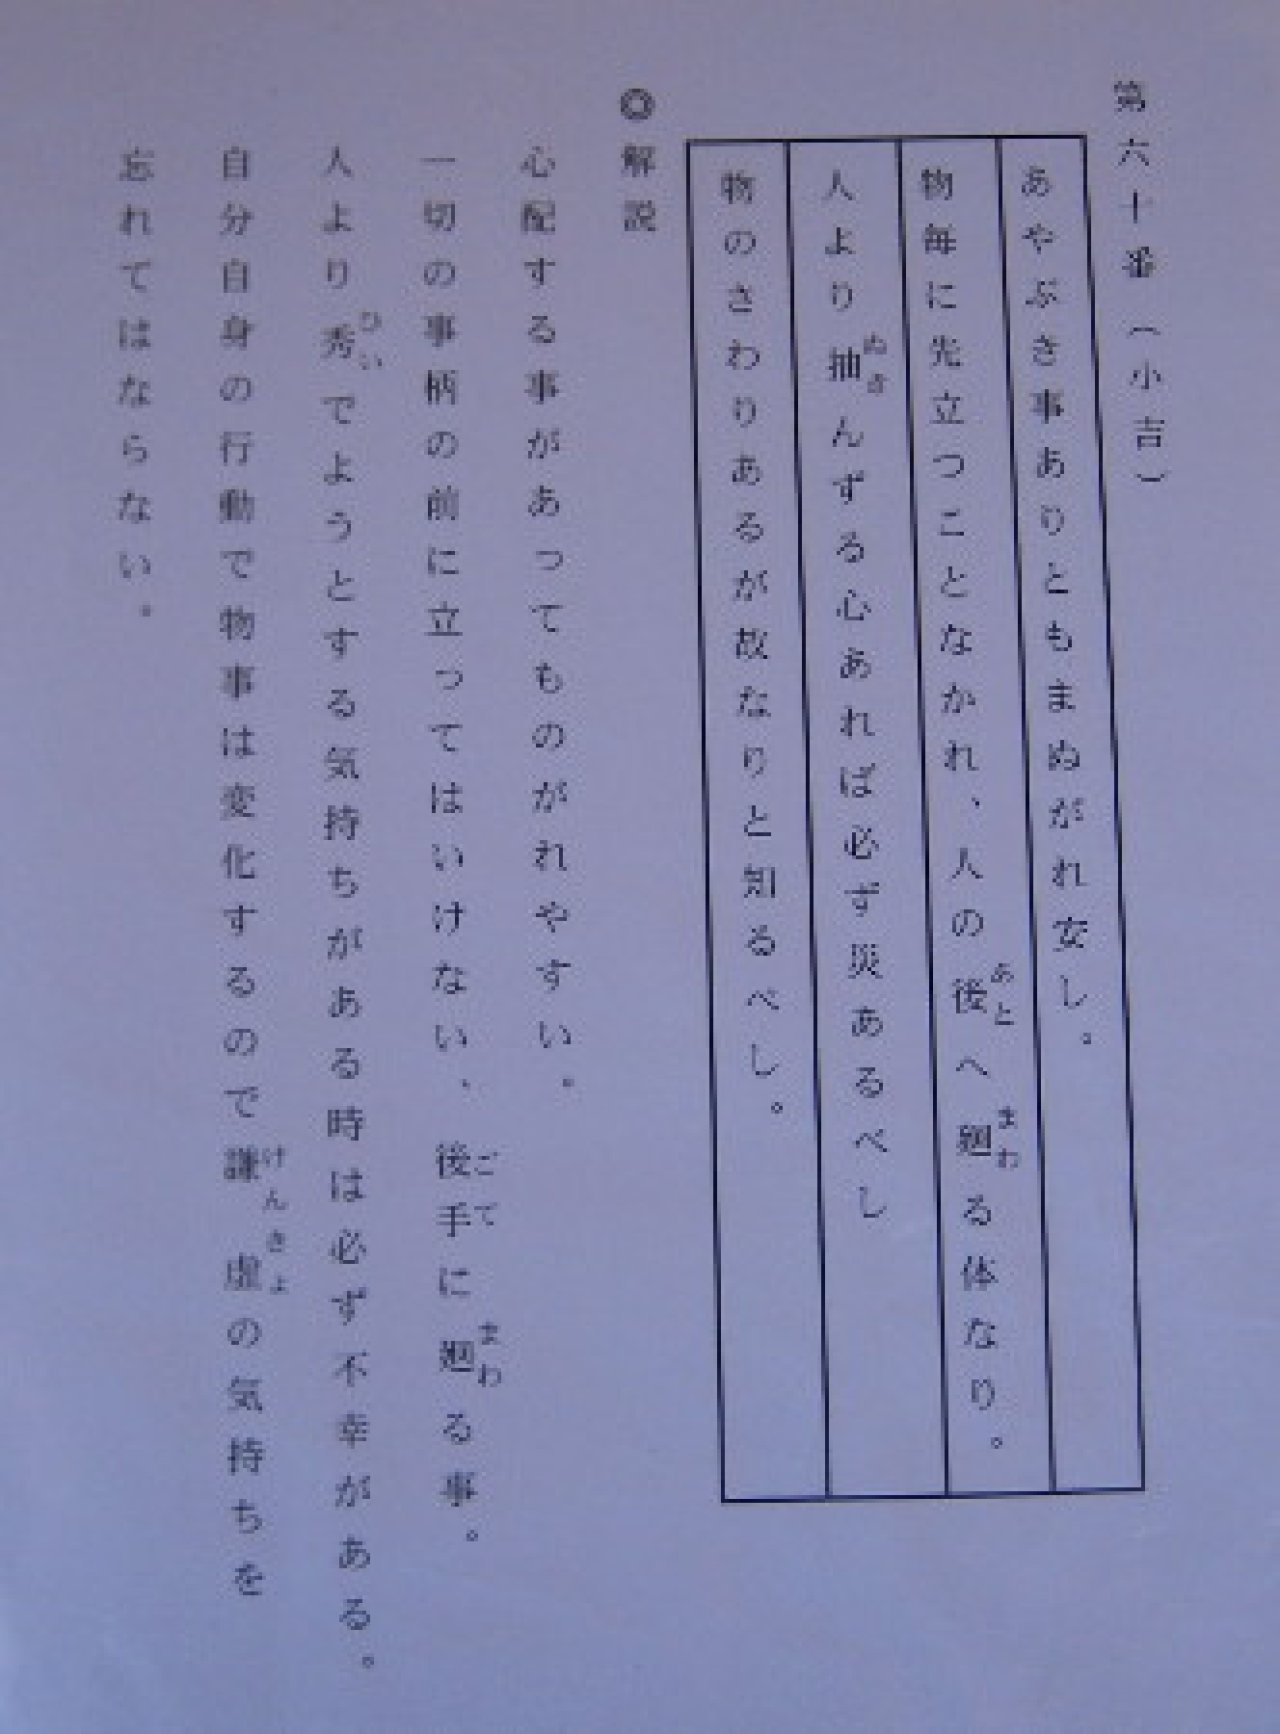 第六十番(小吉)
あやぶき事ありともまぬがれ安し。
物毎に先立つことなかれ、人の後へ廻る体なり。
人より抽んずる心あれば必ず災あるべし
物のさわりあるが故なりと知るべし。
◎解説
心配する事があってものがれやすい。
一切の事柄の前に立ってはいけない、後手に廻る事。
人より秀でようとする気持ちがある時は必ず不幸がある。
自分自身の行動で物事は変化するので謙虚の気持ちを
忘れてはならない。